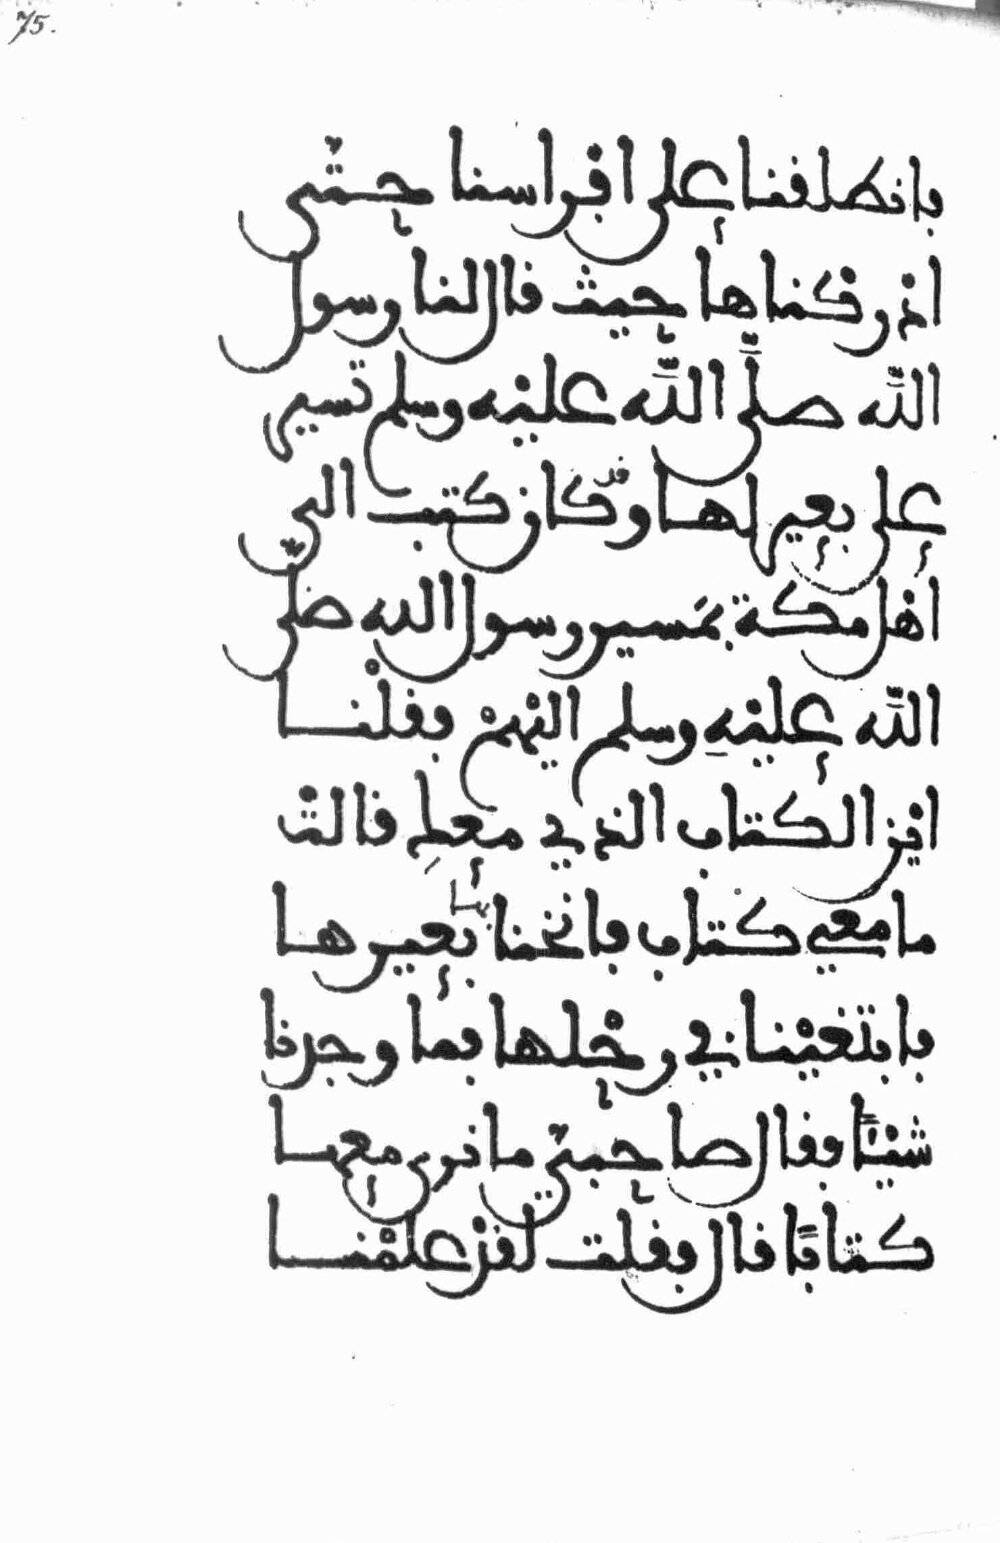 75.
فانطلقنا على افراسنا حتّى
ادركناها حيث قال لنا رسول
الله صلّى الله عليه وسلم تسير
على بعير لها وقد كان كتب الى
اهل مكة بمسير رسول الله صلّى
الله عليهِ وسلم اليهم فقلنا
اين الكتاب الذي معكِ قالت
ما معي كتاب فانخنا بها بعيرها
فابتغينا في رحلها فما وجدنا
شيئًا فقال صاحبيّ ما نرى معها
كتابًا قال فقلت لقد علمنا